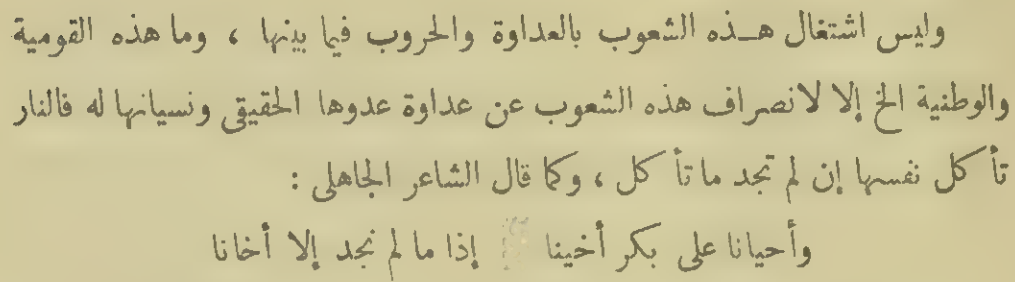 وليس اشتغال هذه الشعوب بالعداوة والحروب فيما بينها ، وما هذه القومية
والوطنية الخ إلا لانصراف هذه الشعوب عن عداوة عدوها الحقيقى ونسيانها له فالنار
تأكل نفسها إن لم تجد ما تأكل ، وكما قال الشاعر الجاهلى :
وأحيانا على بكر أخينا إذا ما لم نجد إلا أخانا